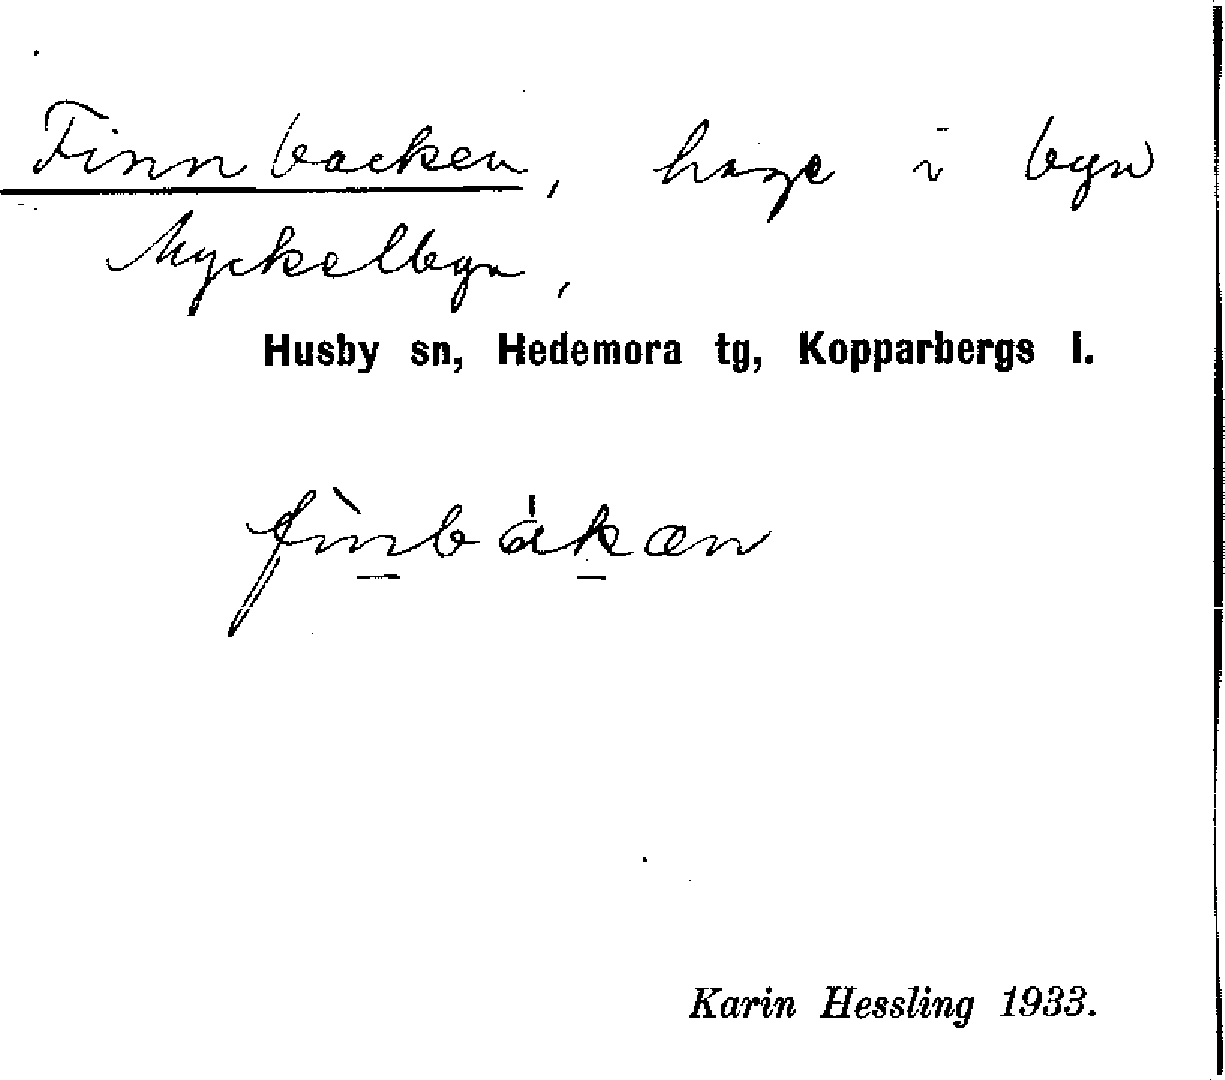 Finnbacken, hage i byn
Myckelbyn,
Husby sn, Hedemora tg, Kopparbergs l.
fìn̠bákæn
Karin Hessling 1933.